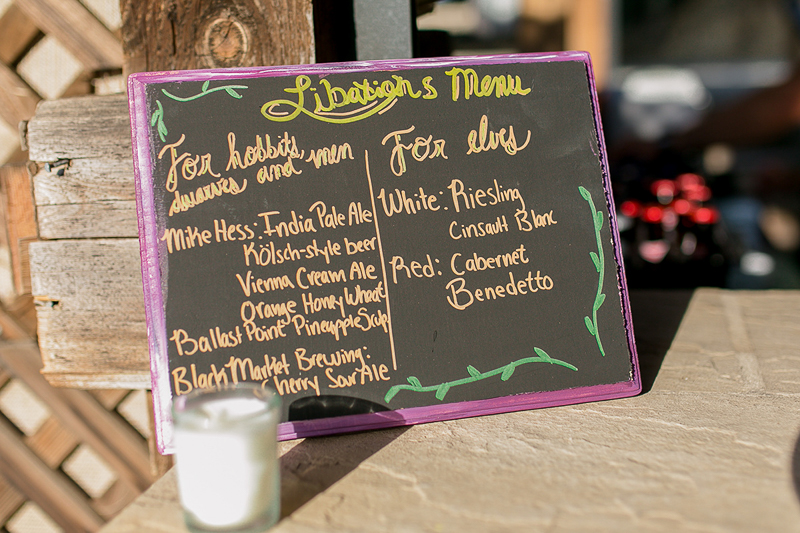 Libations Menu
For hobbits,
dwarves and men
Mike Hess: India Pale Ale
Kölsch-style beer
Vienna Cream Ale
Orange Honey Wheat
Ballast Point Pineapple Sculp
Black Market Brewing:
Cherry Sour Ale
For elves
White: Riesling
Cinsault Blanc
Red: Cabernet
Benedetto